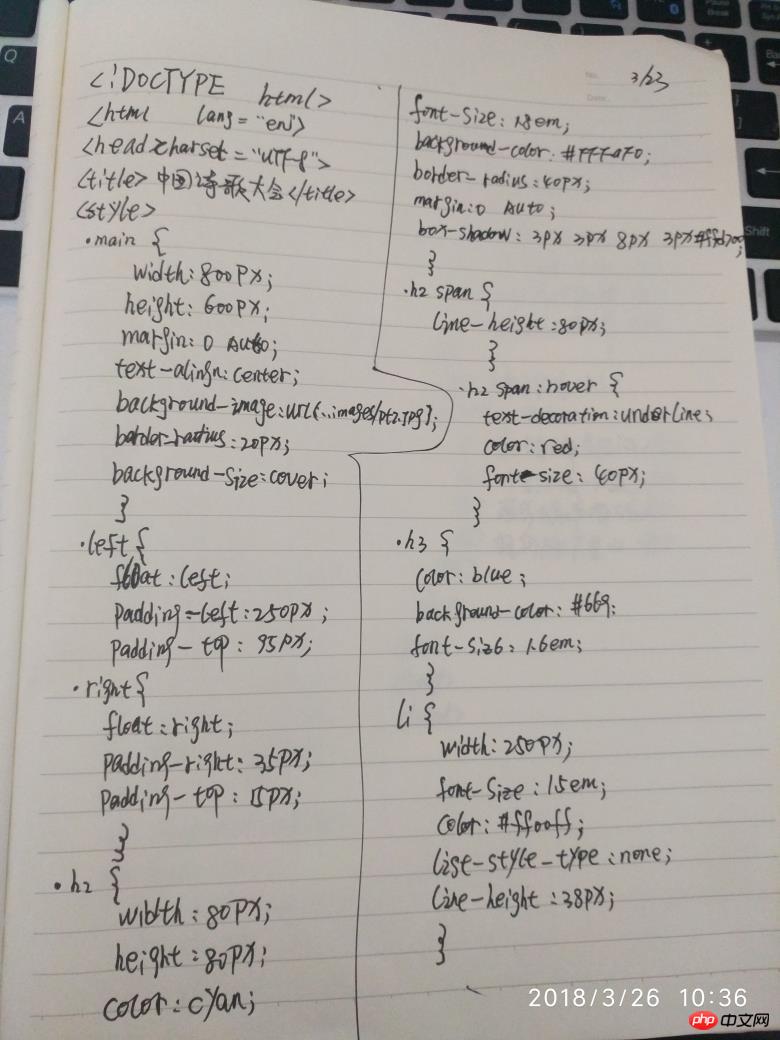 3/23
<!DOCTYPE html>
<html lang="en">
<head charset="UTF-8">
<title>中国诗歌大会</title>
<style>
.main {
width:800px;
height:600px;
margin:0 Auto;
text-alingn:center;
background-image:url(../images/pt2.jpg);
border-radius:20px;
background-size:cover;
}
.left {
float:left;
padding-left:250px;
padding-top:95px;
}
.right {
float:right;
padding-right:35px;
padding-top:15px;
}
.h2 {
width:80px;
height:80px;
color:cyan;
font-size:1.8em;
background-color:
border-radius:40px;
margin:0 Auto;
box-shadow: 3px 3px 8px 3px #ffd700;
}
.h2 span {
line-height:80px;
}
.h2 span:hover {
text-decoration:underline;
color:red;
font-size:40px;
}
.h3 {
color:blue;
background-color:#669;
font-size:1.6em;
}
li {
width:250px;
font-size:1.5em;
color:#ff00ff;
list-style-type:none;
line-height:38px;
}
2018/3/26 10:36
php 中文网